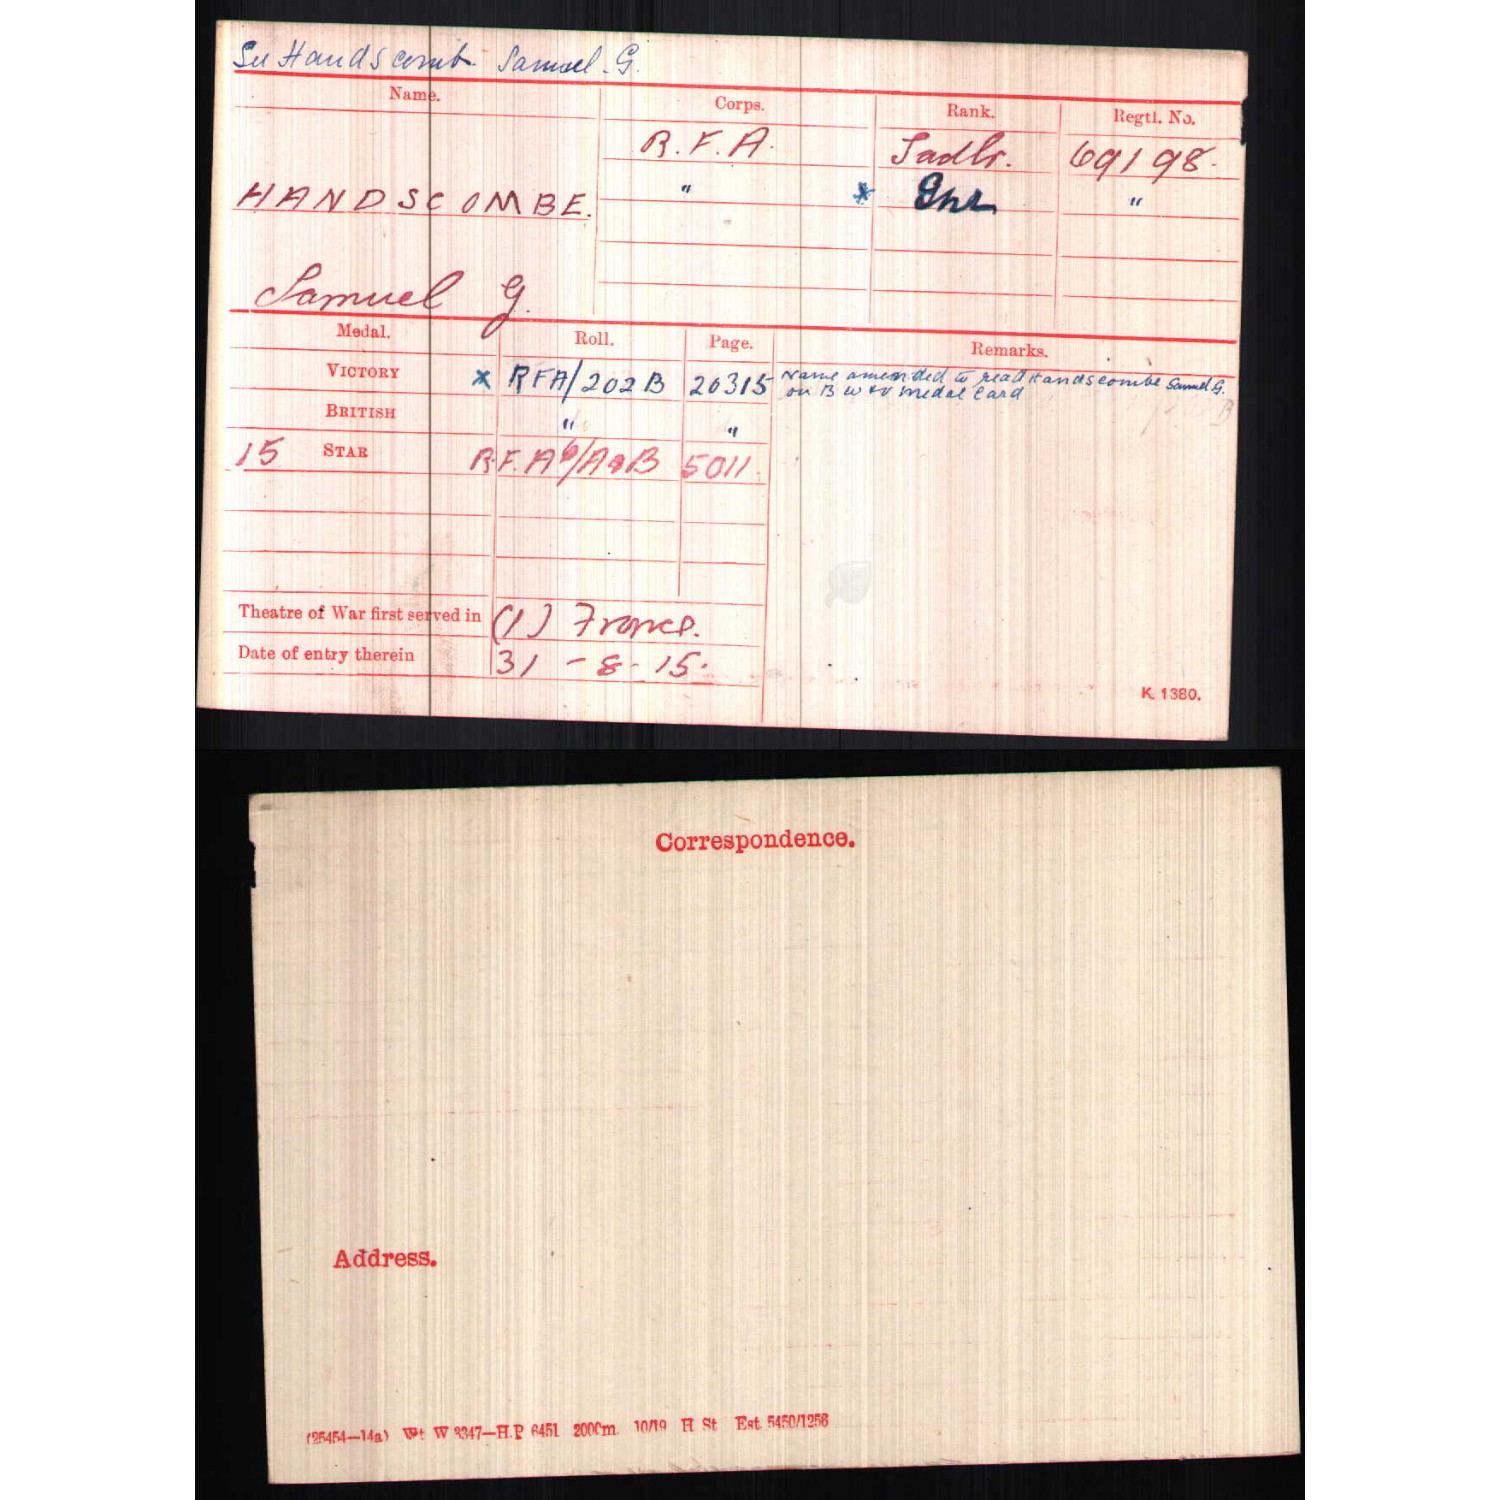 See Handscomb. Samuel. G.
Name. Corps. Rank. Regtl. No.
R.F.A. Sadlr. 69198.
HANDSCOMBE. " * Gnr "
Samuel G.
Medal. Roll. Page. Remarks.
VICTORY x RFA/202B 20315 Name amended to read Handscombe Samuel G.
on B W & V medal card
BRITISH " "
15 STAR R.F.A 6/A B 5011.
Theatre of War first served in (1) France.
Date of entry therein 31 - 8 - 15.
K. 1380.
Correspondence.
Address.
(25454—14a) Wt W 3347—H.P 6451 2000m. 10/19 H St Est. 5450/1256